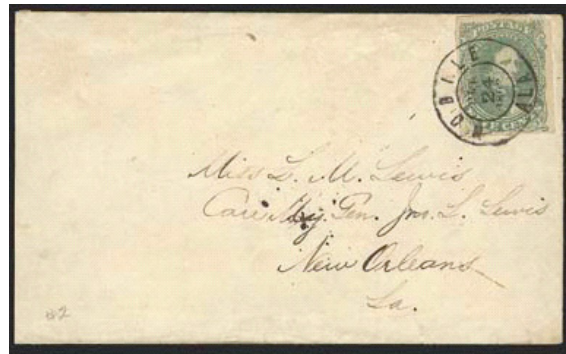 POSTAGE
MOBILE ALA
24
CENTS
Miss L. M. Lewis
Care Maj. Gen. Jno. L. Lewis
New Orleans
La.